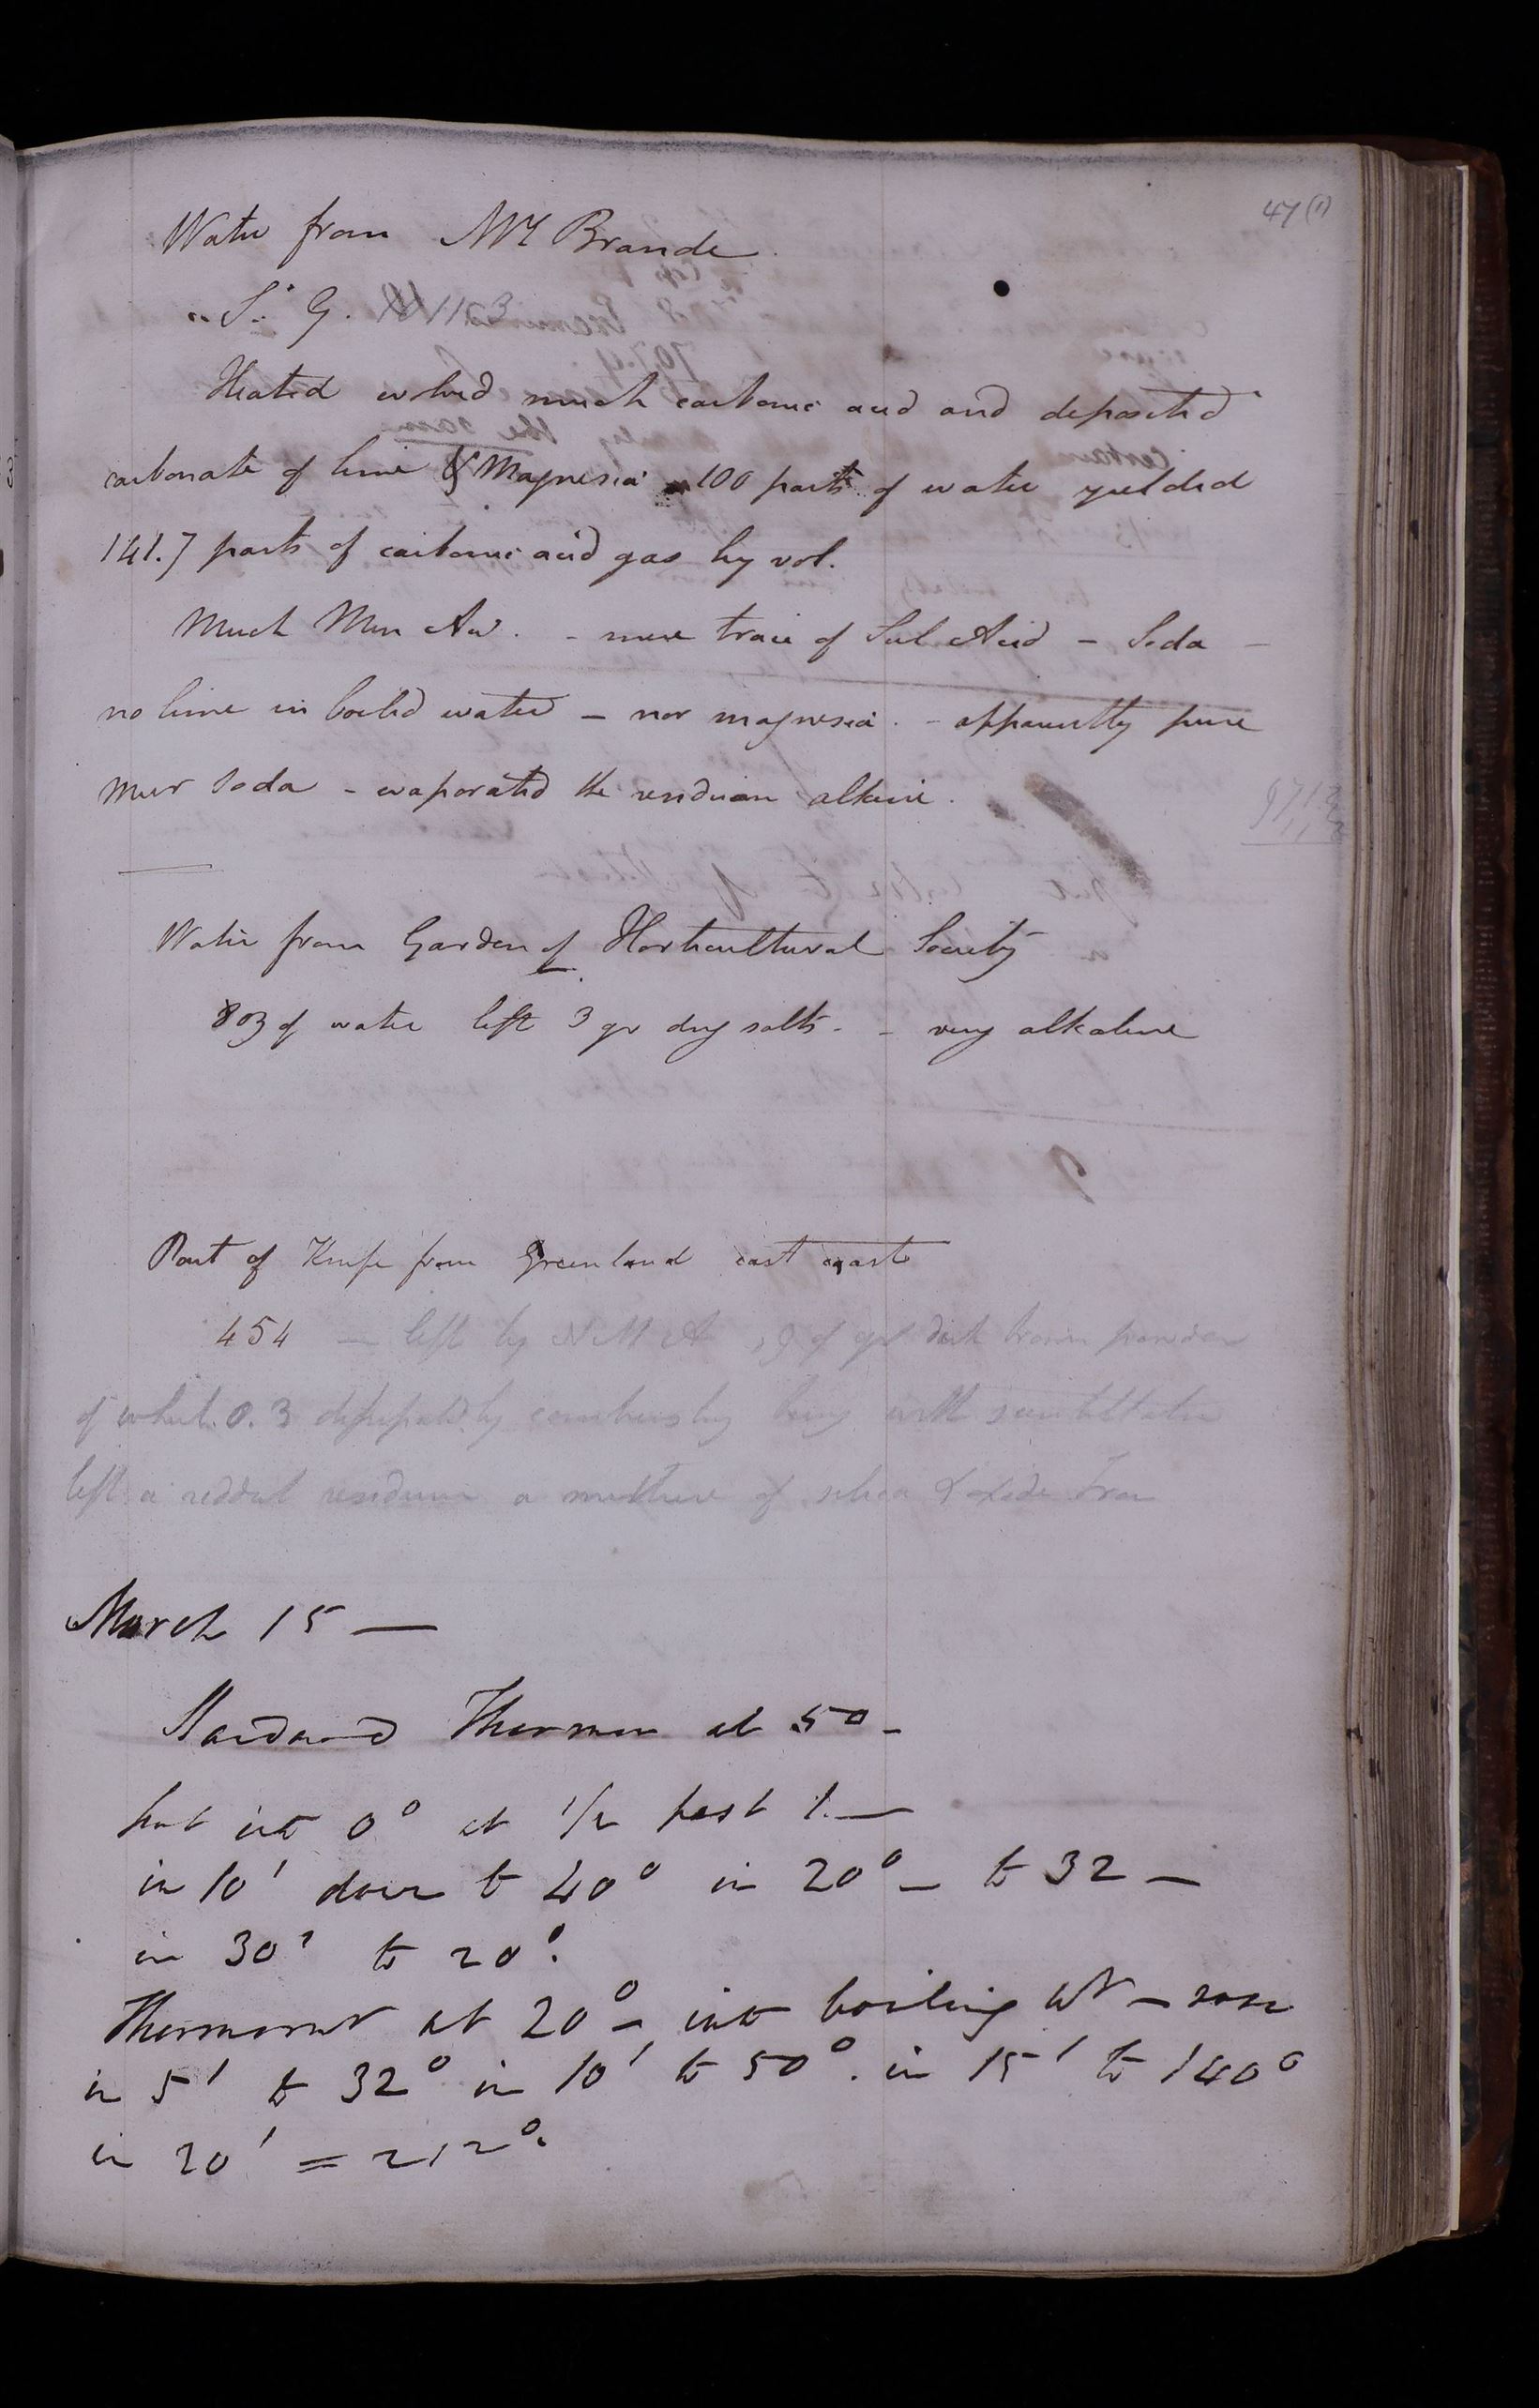 47 (1)
Water from Mr Brande.
S. G. 1113
Heated evolved much carbonic acid and deposited
carbonate of lime & Magnesia 100 parts of water yielded
141.7 parts of carbonic acid gas by vol.
Much Mur Acid. - mere trace of Sul Acid - Soda -
no lime in boiled water - nor magnesia. - apparently pure
mur Soda - evaporated the residuum alkaline.
Water from Garden of Horticultural Society
8 oz of water left 3 gr dry salts. - very alkaline
Part of Knife from Greenland east coast
454 - left by N M A of gr dark brown powder
of which 0.3 by being with
left a reddish residuum a mixture of silica & oxide Iron
March 15 —
Standard Thermom at 50 -
put into 0° at 1/2 past 1. —
in 10' down to 40° in 20° - to 32 -
in 30' to 20°.
Thermomr at 20° - into boiling Wr - rose
in 5' to 32° in 10' to 50°. in 15' to 140°
in 20' = 212°.